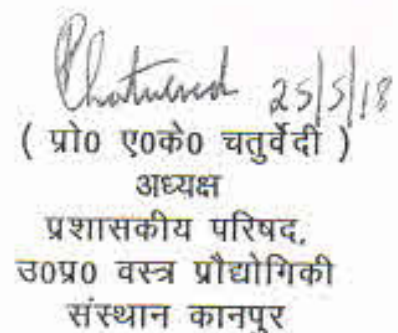 Chaturvedi 25/5/18
( प्रो0 ए0के0 चतुर्वेदी )
अध्यक्ष
प्रशासकीय परिषद,
उ0प्र0 वस्त्र प्रौद्योगिकी
संस्थान कानपुर